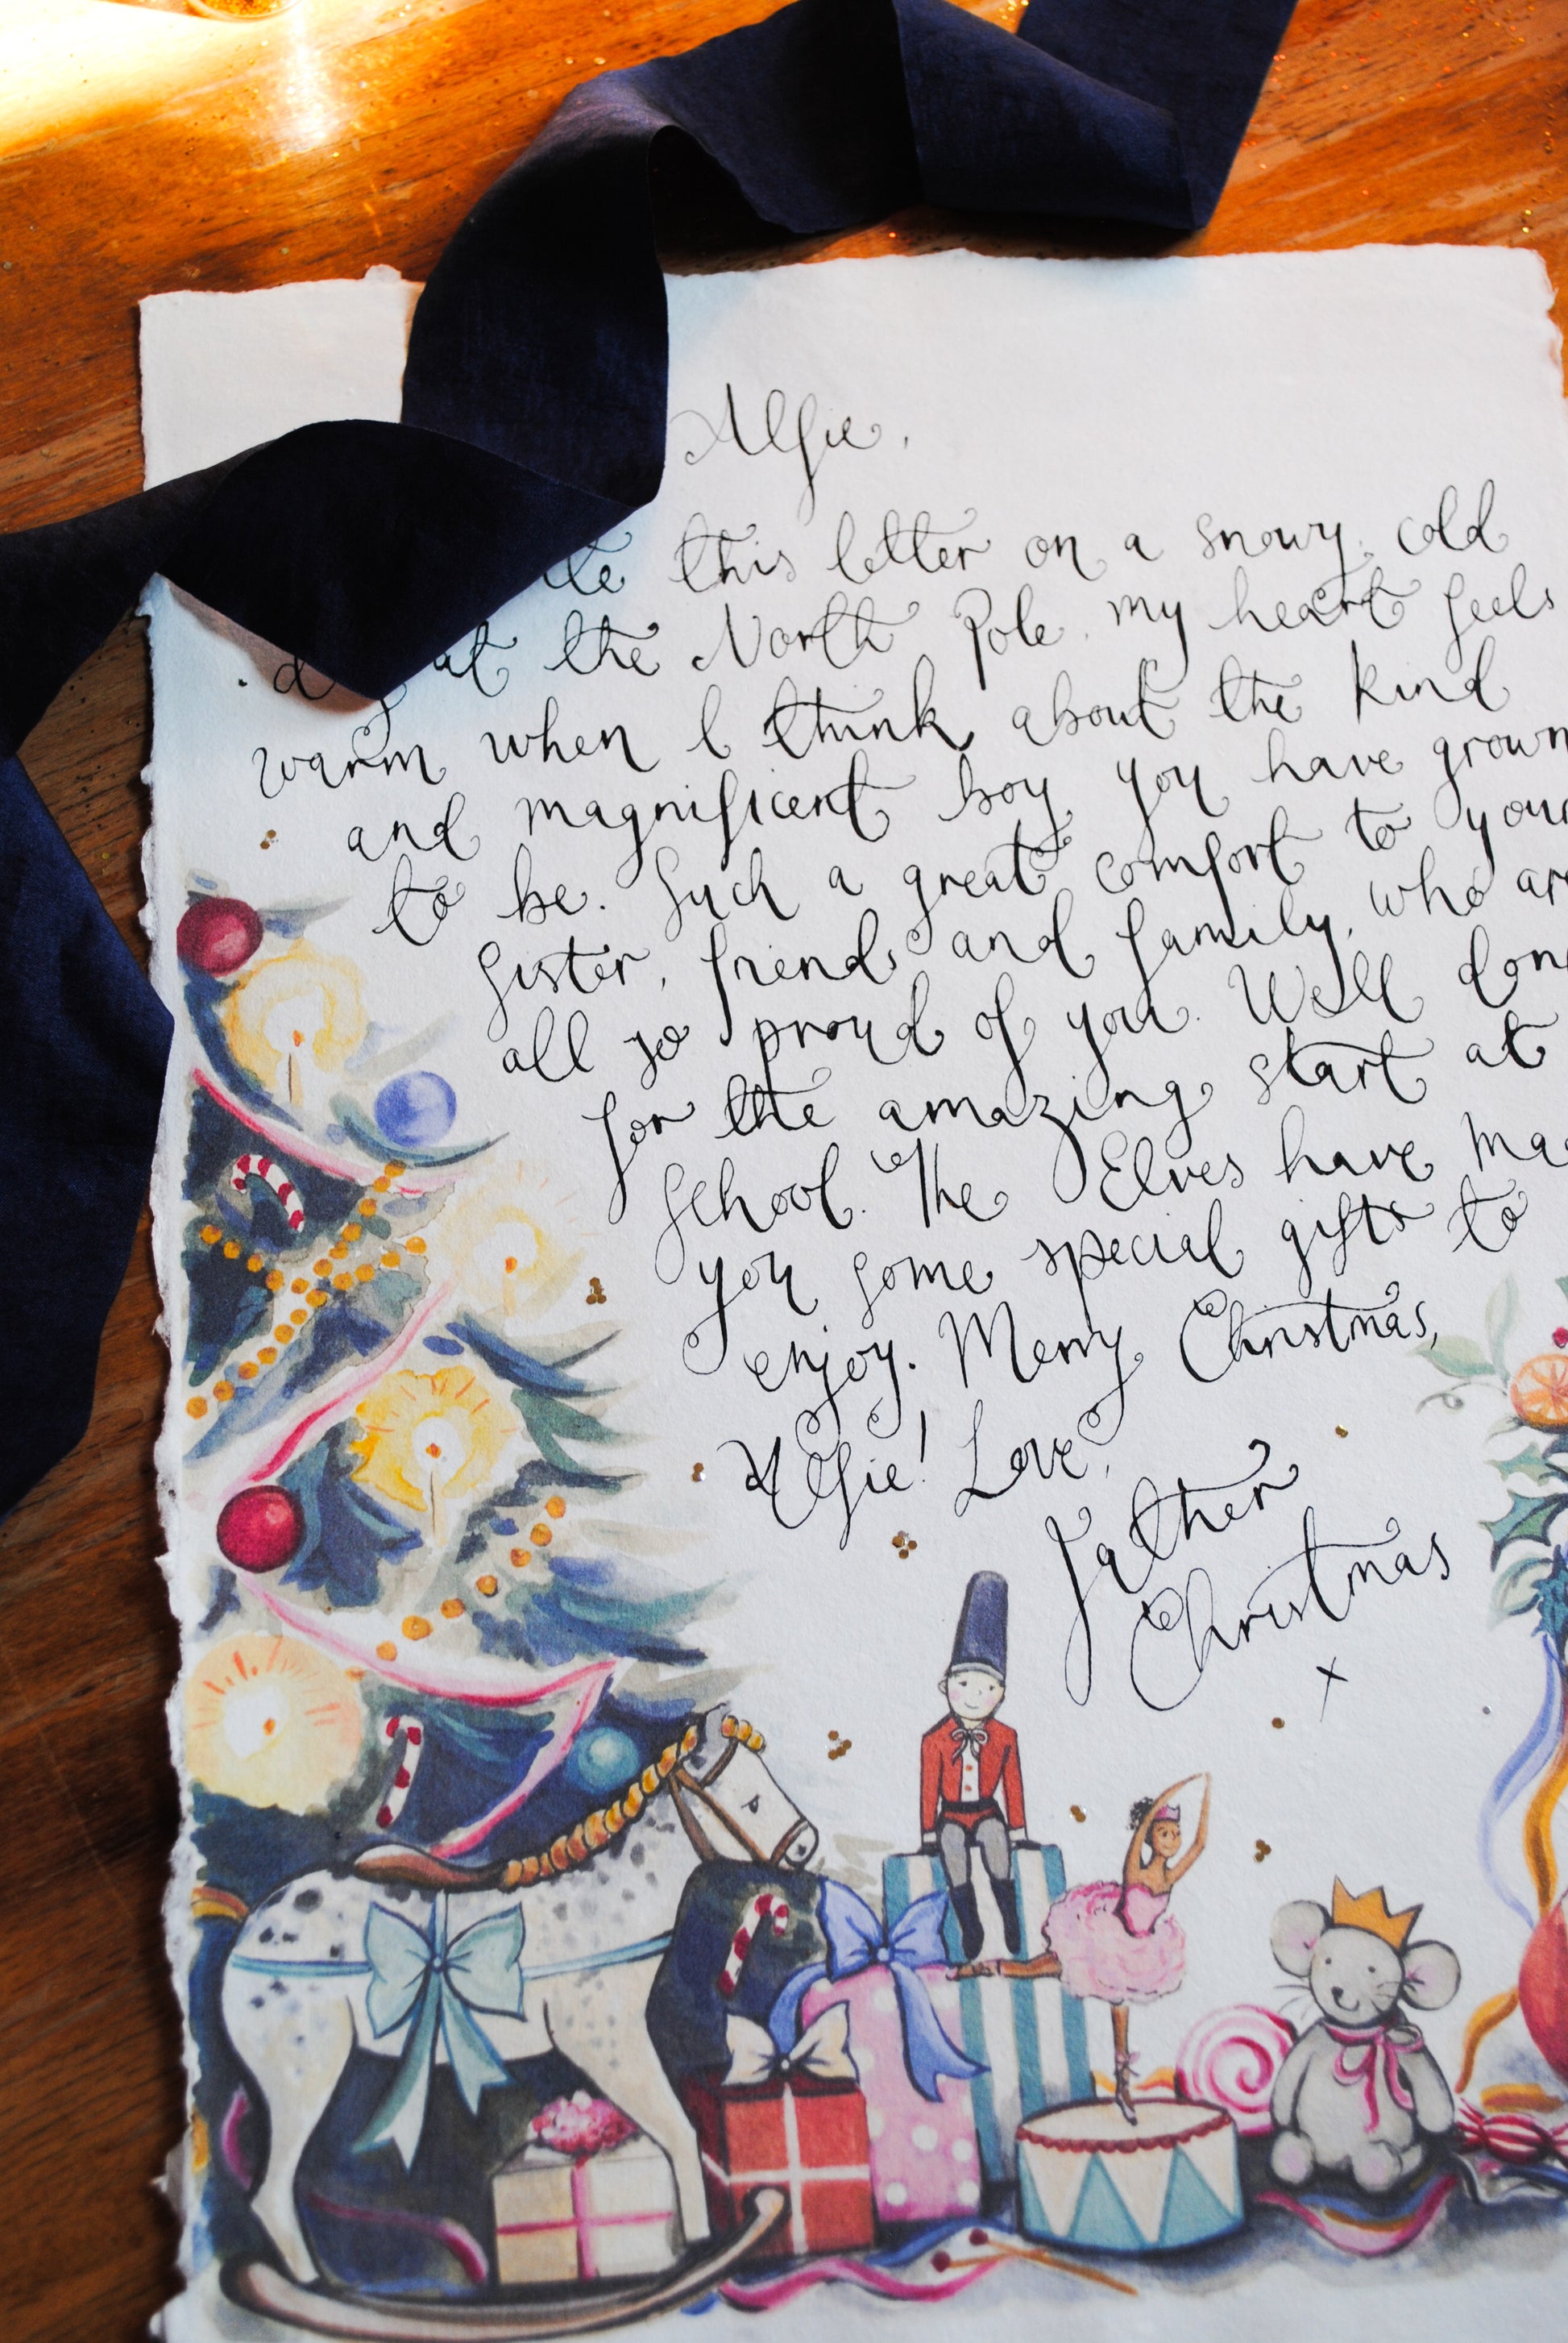 Alfie,
this letter on a snowy, cold
at the North Pole, my heart feels
warm when I think about the kind
and magnificent boy you have grown
to be. Such a great comfort to your
sister, friends and family, who are
all so proud of you. Well done
for the amazing start at
school. The Elves have ma
you some special gifts to
enjoy. Merry Christmas,
Alfie! Love,
Father
Christmas
x